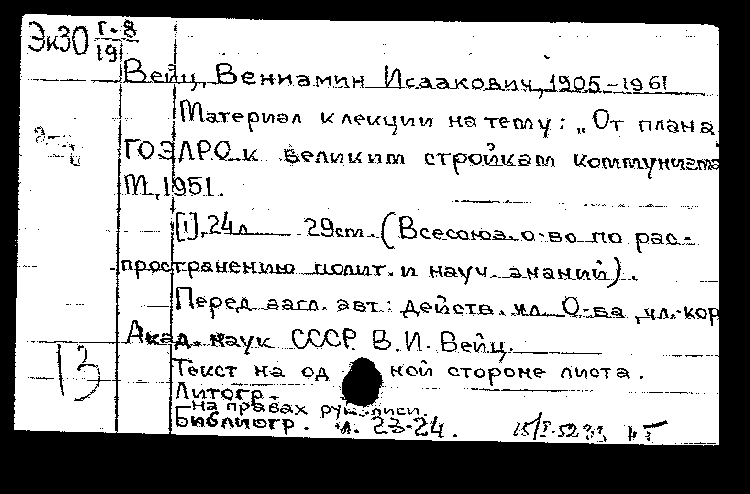 Эк30 Г-8
19
Вейц, Вениамин Исаакович, 1905-1961
Материал к лекции на тему: „От плана
ГОЭЛРО к великим стройкам коммунизма
М., 1951.
[1], 24л 29см. (Всесоюз. о-во по рас-
пространению полит. и науч. знаний).
Перед загл. авт.: действ. чл. О-ва, чл.-кор
Акад. наук СССР В.И. Вейц.
Текст на од ной стороне листа.
13
Литогр.
на правах рукописи.
Библиогр. л. 23-24.